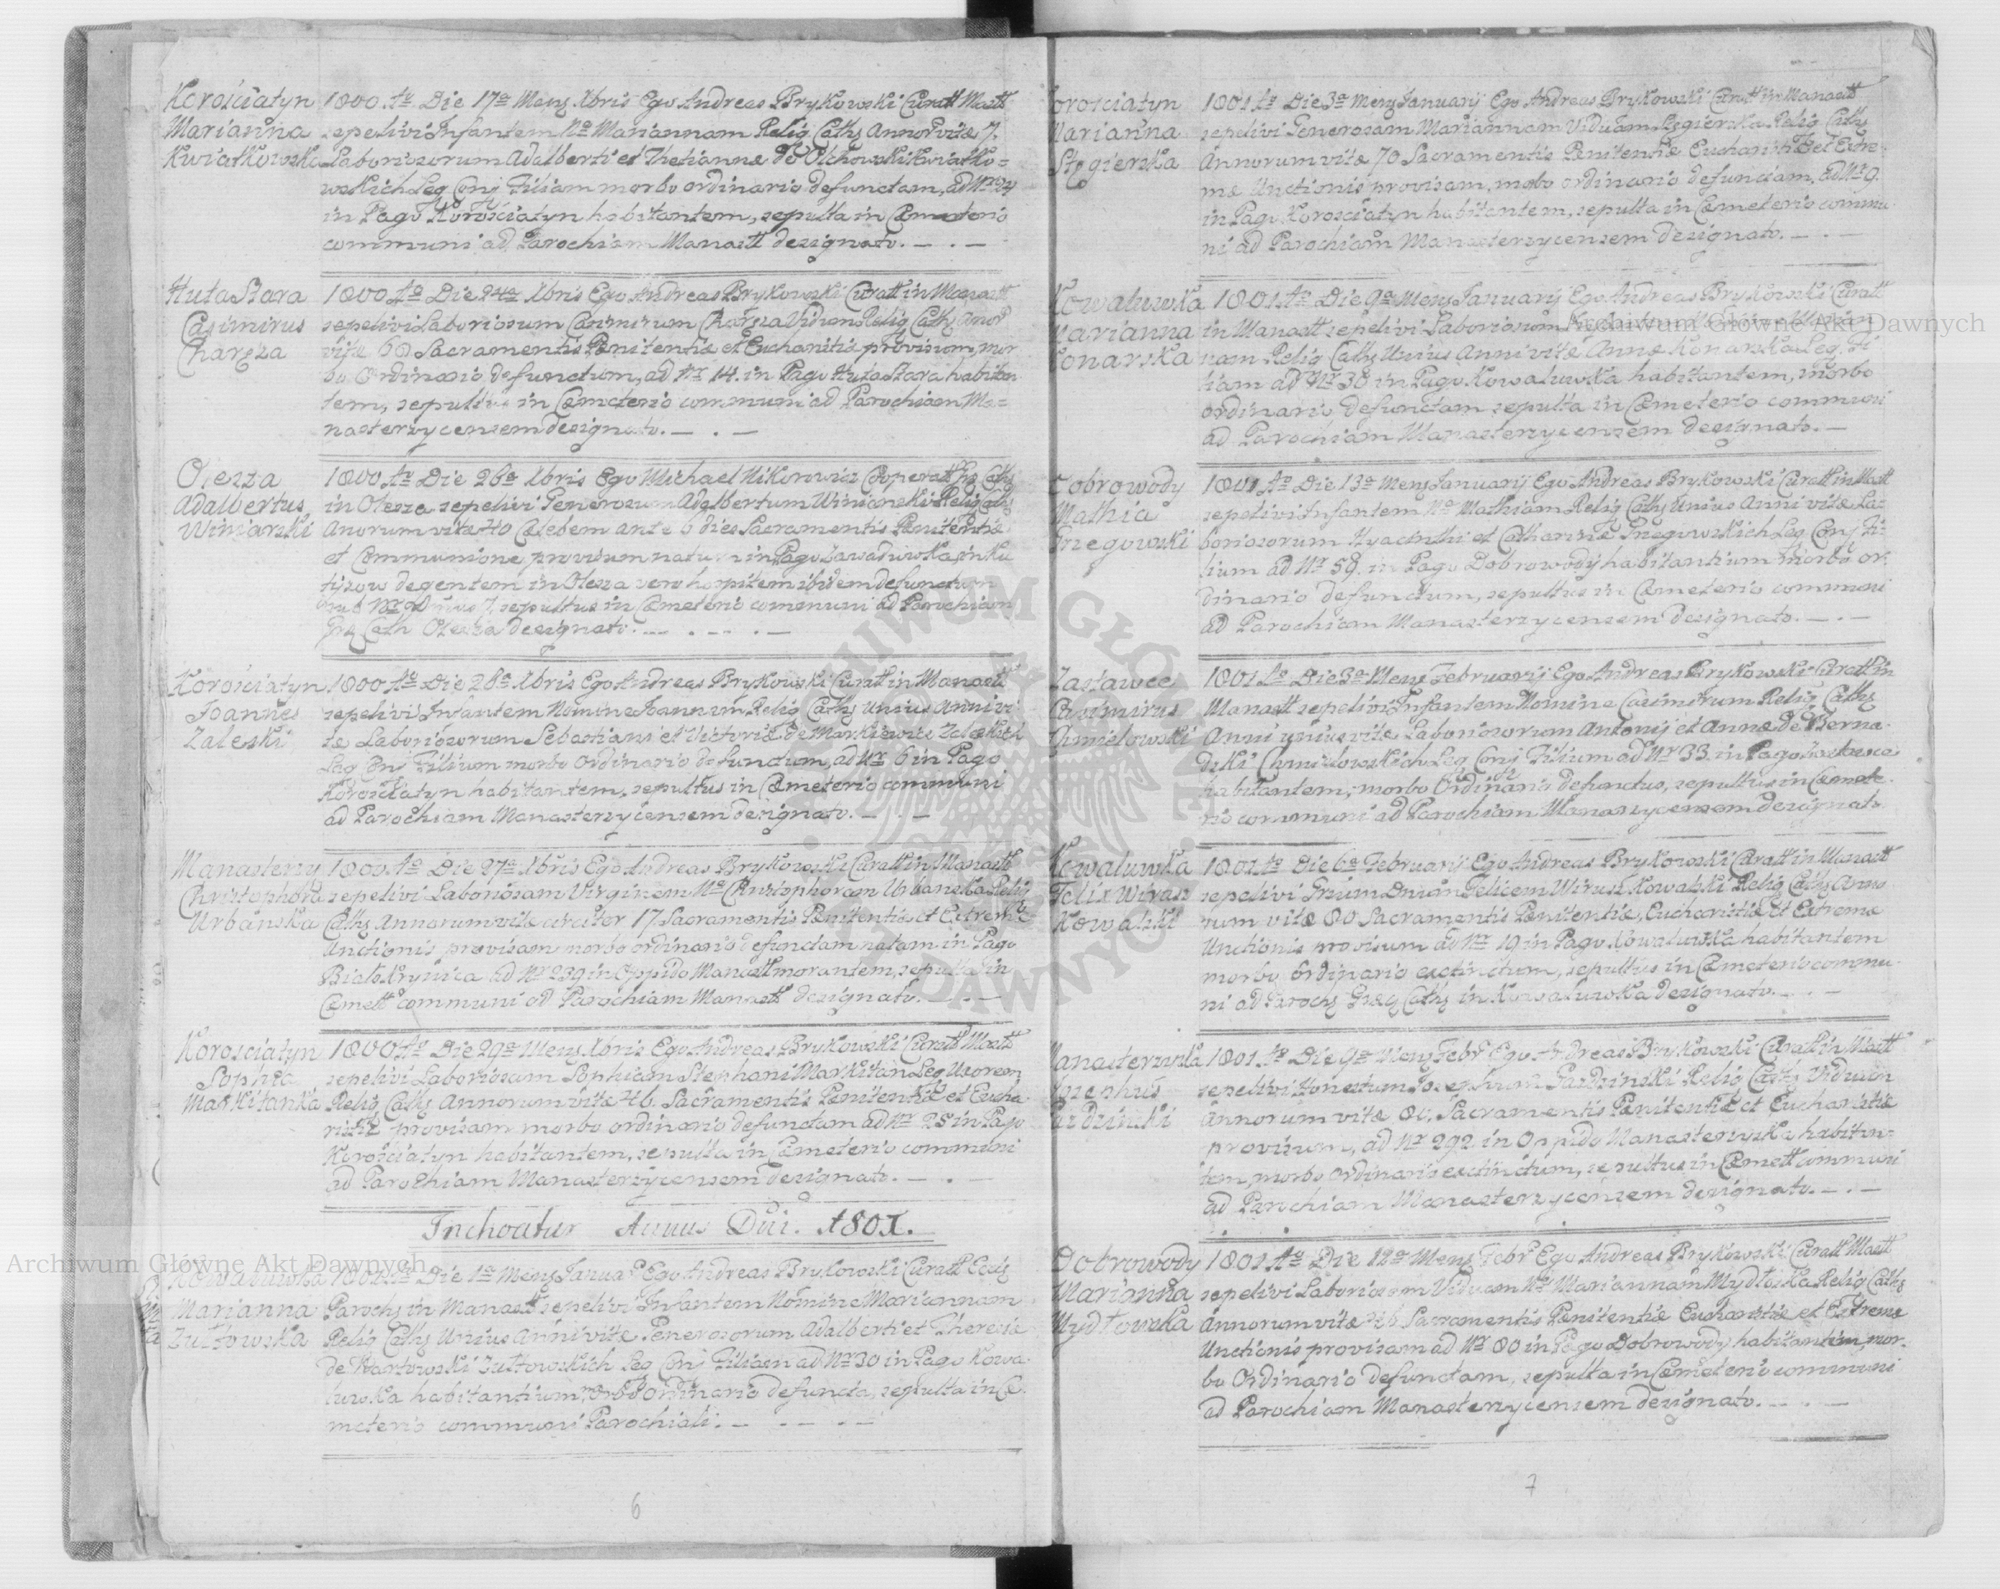 Korościatyn
Marianna
Kwiatkowska
1800 Ao Die 17a Mens Xbris Ego Andreas Brykowski Curatt Mastt
sepelivi Infantem Na Mariannam Relig Caths Annor vitæ 7.
Laboriosorum Adalberti et Thetiannæ de Olchowski Kwiatko=
wskich Leg Conj Filiam morbo ordinario defunctam, ad Nr 24
in Pago Korościatyn habitantem, sepulta in Cæmeterio
communi ad Parochiam Manastt designato.
Huta Stara
Casimirus
Charęza
1800 Ao Die 24a Xbris Ego Andreas Brykowski Curatt in Manastt
sepelivi Laboriosum Casimirum Charęza Viduum Relig Caths Annor
vitæ 60 Sacramentis Pænitentiæ et Eucharistiæ provisum, mor
bo Ordinario defunctum, ad Nr 14. in Pago Huta Stara habitan
tem, sepultus in Cæmeterio communi ad Parochiam Ma=
nasterzycensem designato.
Olesza
Adalbertus
Winiarski
1800 Ao Die 26a Xbris Ego Michael Nikorowicz Cooperatt Gr Caths
in Olesza sepelivi Generosum Adalbertum Winiarski Relig Caths
Anorum vitæ 40 Cælebem ante 6 dies Sacramentis Pænitentiæ
et Communione, provisum natum in Pago Zawaduwka, in Ku
tyzow degentem in Olesza vero hospitem ibidem defunctum
sub Nr 7, sepultus in Cæmeterio communi ad Parochiam
Græ Cath Olesza designato.
Korościatyn
Joannes
Zaleski
1800 Ao Die 28a Xbris Ego Andreas Brykowski Curatt in Manastt
sepelivi Infantem Nomine Joannem Relig Caths Unius Anni vi
tæ Laboriosorum Sebastiani et Victoriæ de Markiewicz Zaleskich
Leg Conj Filium morbo ordinario defunctum, ad Nr 6 in Pago
Korościatyn habitantem, sepultus in Cæmeterio communi
ad Parochiam Manasterzycensem designato.
Manasterzy
Christophora
Urbańska
1800 Ao Die 27a Xbris Ego Andreas Brykowski Curatt in Manastt
sepelivi Laboriosam Virginem Na Christophoram Urbańska Relig
Caths Annorum vitæ circiter 17 Sacramentis Pænitentiæ et Extremæ
Unctionis provisam morbo ordinario defunctam natam in Pago
Białokrynica ad Nr 239 in Oppido Manastt morantem, sepulta in
Cæmett communi ad Parochiam Manastt designato.
Korosciatyn
Sophia
Markitanka
1800 Ao Die 29a Mens Xbris Ego Andreas Brykowski Curatt Mastt
sepelivi Laboriosam Sophiam Stephani Markitan Leg Uxorem
Relig Caths Annorum vitæ 46. Sacramentis Pænitentiæ et Eucha
ristiæ provisam morbo ordinario defunctam ad Nr 25 in Pago
Korościatyn habitantem, sepulta in Cæmeterio communi
ad Parochiam Manasterzycensem designato.
Inchoatur Annus Dni. 1801.
Kowaluwka
Marianna
Zułtowska
1801 Ao Die 1a Mens Januar Ego Andreas Brykowski Curatt Eccls
Parochs in Manastt sepelivi Infantem Nomine Mariannam
Relig Caths Unius Anni vitæ Generosorum Adalberti et Theresiæ
de Wartowski Zułtowskich Leg Conj Filiam ad Nr 30 in Pago Kowa
luwka habitantium, morbo Ordinario defuncta, sepulta in Cæ
meterio communi Parochiali.
6
orosciatyn
Marianna
Stęgierska
1801 Ao Die 3a Mens Januarij Ego Andreas Brykowski Curatt in Manastt
sepelivi Generosam Mariannam Viduam Stęgierska Relig Caths
Annorum vitæ 70 Sacramentis Pænitentiæ Eucharistiæ et Extre=
mæ Unctionis provisam, morbo ordinario defunctam, ad Nr 9.
in Pago Korosciatyn habitantem, sepulta in Cæmeterio commu
ni ad Parochiam Manasterzycensem designato.
Kowaluwka
Marianna
Konarska
1801 Ao Die 9a Mens Januarij Ego Andreas Brykowski Curatt
in Manastt sepelivi Laboriosum Infantem Nomine Marian
nam Relig Caths Unius Anni vitæ Annæ Konarska Leg Fi
liam ad Nr 38 in Pago Kowaluwka habitantem, morbo
ordinario defunctam sepulta in Cæmeterio communi
ad Parochiam Manasterzycensem designato.
Dobrowody
Mathia
Gnegowski
1801 Ao Die 13a Mens Januarij Ego Andreas Brykowski Curatt in Mastt
sepelivi Infantem Na Mathiam Relig Caths Unius Anni vitæ La=
boriosorum Hyacinthi et Catharinæ Gnegowskich Leg Conj Fi=
lium ad Nr 58 in Pago Dobrowody habitantium morbo or=
dinario defunctum, sepultus in Cæmeterio communi
ad Parochiam Manasterzycensem designato.
Zastawce
Casimirus
Chmielowski
1801 Ao Die 3a Mens Februarij Ego Andreas Brykowski Curatt in
Manastt sepelivi Infantem Nomine Casimirum Relig Caths
Anni unius vitæ Laboriosorum Antonij et Annæ de Berna=
dzki Chmielowskich Leg Conj Filium ad Nr 33 in Pago Zastawce
habitantem, morbo Ordinario defunctus, sepultus in Cæmete=
rio communi ad Parochiam Manasterzycensem designato
Kowaluwka
Felix Wirusz
Kowalski
1801 Ao Die 6a Februarij Ego Andreas Brykowski Curatt in Manastt
sepelivi Grsum Dnum Felicem Wirusz Kowalski Relig Caths Anno
rum vitæ 80 Sacramentis Pænitentiæ, Eucharistiæ et Extremæ
Unctionis provisum ad Nr 19 in Pago Kowaluwka habitantem
morbo Ordinario exctinctum, sepultus in Cæmeterio commu=
ni ad Parochs Græg Caths in Kowaluwka designato.
Manasterzyska
Josephus
Pardziński
1801 Ao Die 9a Mens Febr Ego Andreas Brykowski Curatt in Mastt
sepelivi Honestum Josephum Pardzinski Relig Caths Viduum
Annorum vitæ 80. Sacramentis Pænitentiæ et Eucharistiæ
provisum, ad Nr 292 in Oppido Manasterzyska habitan=
tem, morbo ordinario exctinctum, sepultus in Cæmett communi
ad Parochiam Manasterzycensem designato.
Dobrowody
Marianna
Mydłowska
1801 Ao Die 12a Mens Febr Ego Andreas Brykowski Curatt Mastt
sepelivi Laboriosam Viduam Na Mariannam Mydłoska Relig Caths
Annorum vitæ 46 Sacramentis Pænitentiæ Eucharistiæ et Extremæ
Unctionis provisam ad Nr 80 in Pago Dobrowody habitantem, mor=
bo Ordinario defunctam, sepulta in Cæmeterio communi
ad Parochiam Manasterzycensem designato.
7
Archiwum Główne Akt Dawnych
Archiwum Główne Akt Dawnych
ARCHIWUM GŁÓWNE AKT DAWNYCH